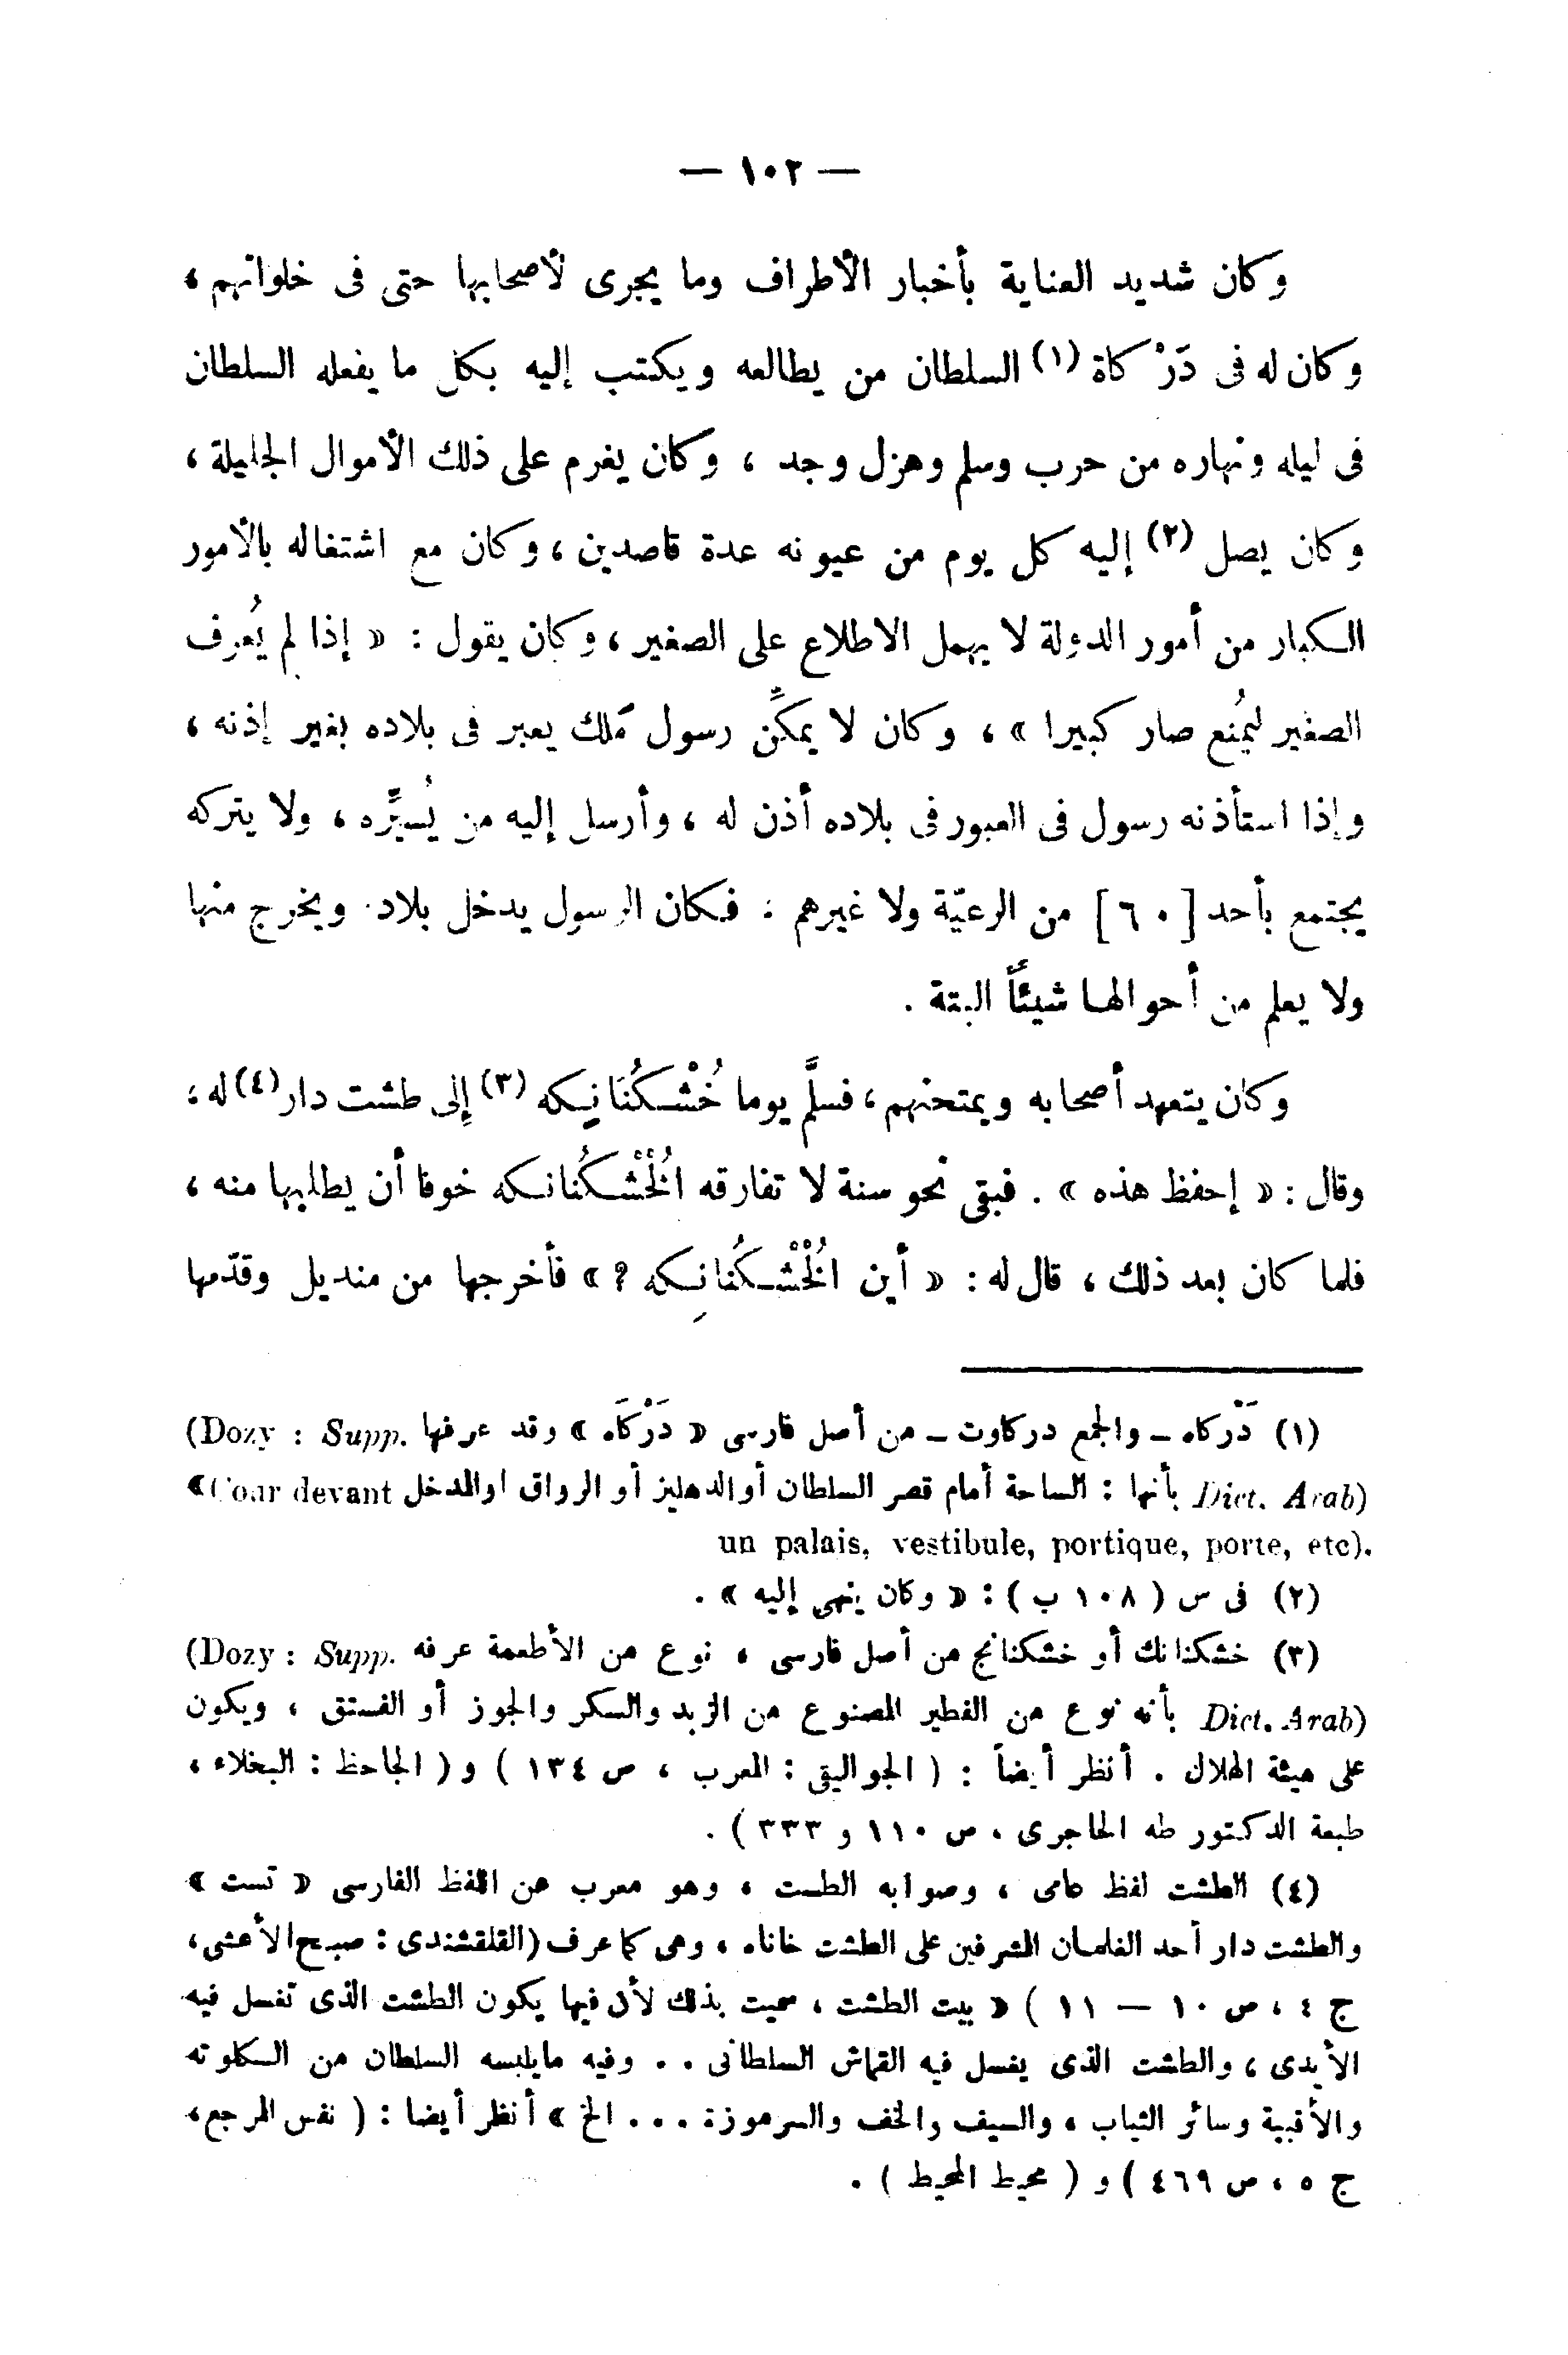 — ١٠٢ —
وكان شديد العناية بأخبار الأطراف وما يجرى لأصحابها حتى فى خلواتهم ،
وكان له فى دَرْكاة (١) السلطان من يطالعه ويكتب إليه بكل ما يفعله السلطان
فى ليله ونهاره من حرب وسلم وهزل وجد ، وكان يغرم على ذلك الأموال الجليلة ،
وكان يصل (٢) إليه كل يوم من عيونه عدة قاصدين ، وكان مع اشتغاله بالأمور
الكبار من أمور الدولة لا يهمل الاطلاع على الصغير ، وكان يقول : « إذا لم يُعرف
الصغير ليُمنع صار كبيرا » ، وكان لا يمكِّن رسول مَلك يعبر فى بلاده بغير إذنه ،
وإذا استأذنه رسول فى العبور فى بلاده أذن له ، وأرسل إليه من يُسيِّره ، ولا يتركه
يجتمع بأحد [ ٦٠ ] من الرعيّة ولا غيرهم : فكان الرسول يدخل بلاد. ويخرج منها
ولا يعلم من أحوالها شيئاً البتة .
وكان يتعهد أصحابه ويمتحنهم ، فسلَّم يوما خُشْكُنَانِكه (٣) إلى طشت دار (٤) له ؛
وقال : « إحفظ هذه » . فبقى نحو سنة لا تفارقه الخُشْكُنانكه خوفا أن يطلبها منه ،
فلما كان بعد ذلك ، قال له : « أين الخُشْكُنانكه ؟ » فأخرجها من منديل وقدّمها
(١) دَرْكاه ـ والجمع دركاوت ـ من أصل فارسى « دَرْكَاه » وقد عرفها (Dozy : Supp.
Dict. Arab) بأنها : الساحة أمام قصر السلطان أو الدهليز أو الرواق او المدخل «Cour devant
un palais, vestibule, portique, porte, etc).
(٢) فى س ( ١٠٨ ب ) : « وكان ينهى إليه » .
(٣) خشكنانك أو خشكنانج من أصل فارسى ، نوع من الأطعمة عرفه (Dozy : Supp.
Dict. Arab) بأنه نوع من الفطير المصنوع من الزبد والسكر والجوز أو الفستق ، ويكون
على هيئة الهلال . أنظر أيضاً : ( الجواليقى : المعرب ، ص ١٣٤ ) و ( الجاحظ : البخلاء ،
طبعة الدكتور طه الحاجرى ، ص ١١٠ و ٣٣٣ ) .
(٤) الطشت لفظ عامى ، وصوابه الطست ، وهو معرب عن اللفظ الفارسى « تست »
والطشت دار أحد الغلمان المشرفين على الطشت خاناه ، وهى كما عرف (القلقشندى : صبح الأعشى،
ج ٤ ، ص ١٠ — ١١ ) « بيت الطشت ، سميت بذلك لأن فيها يكون الطشت الذى تغسل فيه
الأيدى ، والطشت الذى يغسل فيه القماش السلطانى . . وفيه مايلبسه السلطان من الكلوته
والأقبية وسائر الثياب ، والسيف والخف والسرموزة . . . الخ » أنظر أيضا : ( نفس المرجع،
ج ٥ ، ص ٤٦٩ ) و ( محيط المحيط ) .